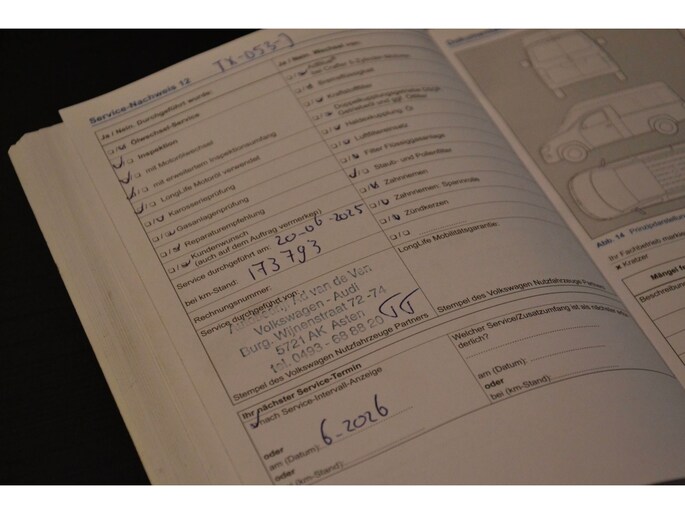 TX-053-J
Service-Nachweis 12
Ja / Nein: Durchgeführt wurde:
Ölwechsel-Service
Inspektion
mit Motorölwechsel
mit erweitertem Inspektionsumfang
LongLife Motoröl verwendet
Karosserieprüfung
Gasanlagenprüfung
Reparaturempfehlung
Kundenwunsch
(auch auf dem Auftrag vermerken)
Service durchgeführt am: 20-06-2025
bei km-Stand: 173793
Rechnungsnummer:
Service durchgeführt von:
van de Ven
Volkswagen - Audi
Burg. Wijnenstraat 72-74
5721 AK Asten
tel. 0493 - 68 88 20
Stempel des Volkswagen Nutzfahrzeuge Partners
Ihr nächster Service-Termin
nach Service-Intervall-Anzeige
oder
am (Datum): 6-2026
oder
(km-Stand):
Ja / Nein: Wechsel von:
Bremsflüssigkeit
Kraftstofffilter
Doppelkupplungsgetriebe
Getriebeöl und ggf. Ölfilter
Haldexkupplung: Öl
Luftfiltereinsatz
Filter Flüssiggasanlage
Staub- und Pollenfilter
Zahnriemen
Zahnriemen: Spannrolle
Zündkerzen
LongLife Mobilitätsgarantie:
Stempel des Volkswagen Nutzfahrzeuge Partners
Welcher Service/Zusatzumfang ist als nächster
derlich?
am (Datum):
oder
bei (km-Stand):
Abb. 14 Prinzipdarstellung
Ihr Fachbetrieb
Kratzer
Mängel
Beschreibung